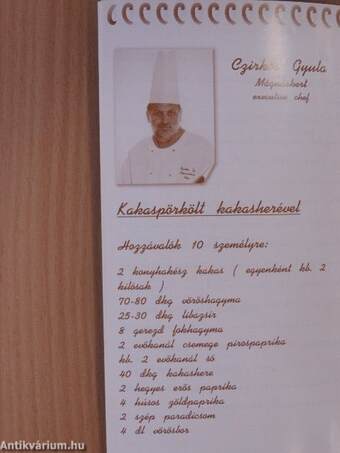 Gyula
Mágnáskert
executive chef
Kakaspörkölt kakasherével
Hozzávalók 10 személyre:
2 konyhakész kakas ( egyenként kb. 2
kilósak )
70-80 dkg vöröshagyma
25-30 dkg libazsír
8 gerezd fokhagyma
2 evőkanál csemege pirospaprika
kb. 2 evőkanál só
40 dkg kakashere
2 hegyes erős paprika
4 húsos zöldpaprika
2 szép paradicsom
4 dl vörösbor
Antikvárium.hu